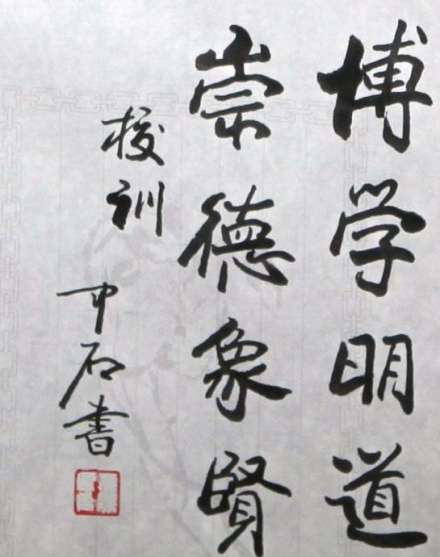 博学明道
崇德象賢
校训
中石書